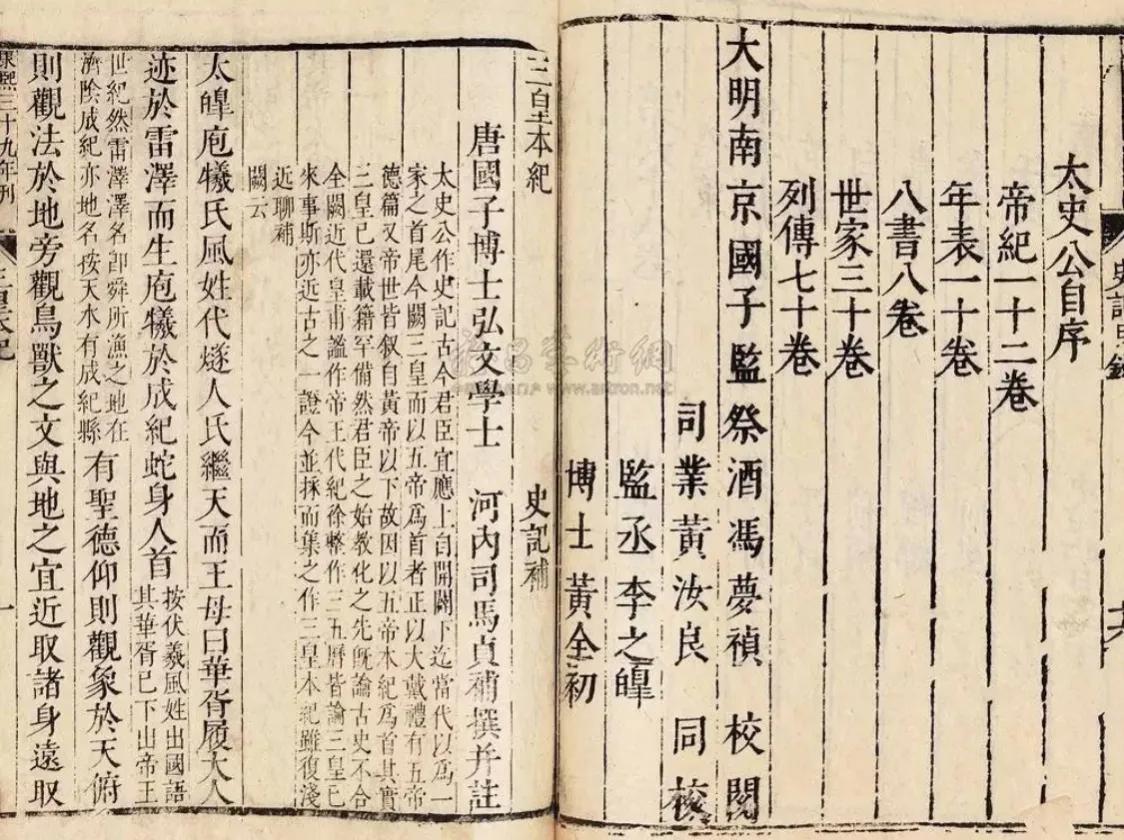 史記目錄
太史公自序
帝紀一十二卷
年表一十卷
八書八卷
世家三十卷
列傳七十卷
大明南京國子監祭酒馮夢禎 校閱
司業黃汝良 同校
監丞李之皥
博士黃全初
三皇本紀 史記補
唐國子博士弘文學士 河內司馬貞補撰并註
太史公作史記古今君臣宜應上自開闢下迄當代以爲一
家之首尾今闕三皇而以五帝爲首者正以大戴禮有五帝
德篇又帝世皆叙自黃帝以下故因以五帝本紀爲首其實
三皇已還載籍罕備然君臣之始教化之先既論古史不合
全闕近代皇甫謐作帝王代紀徐整作三五曆皆論三皇已
來事斯亦近古之一證今並採而集之作三皇本紀雖復淺
近聊補
闕云
太皥庖犧氏風姓代燧人氏繼天而王母曰華胥履大人
迹於雷澤而生庖犧於成紀蛇身人首
按伏羲風姓出國語
其華胥已下出帝王
世紀然雷澤澤名卽舜所漁之地在
濟陰成紀亦地名按天水有成紀縣
有聖德仰則觀象於天俯
則觀法於地旁觀鳥獸之文與地之宜近取諸身遠取
康熙三十九年刊
三皇本紀
一
www.artron.net